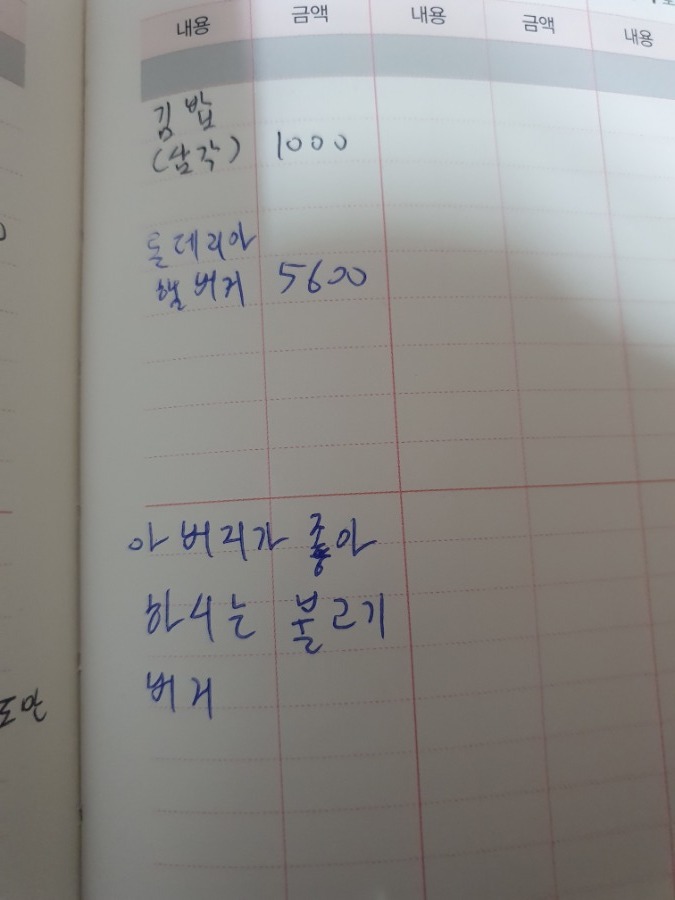 내용 금액 내용 금액 내용
김밥
(삼각) 1000
롯데리아
햄버거 5600
아버지가 좋아
하시는 불고기
버거